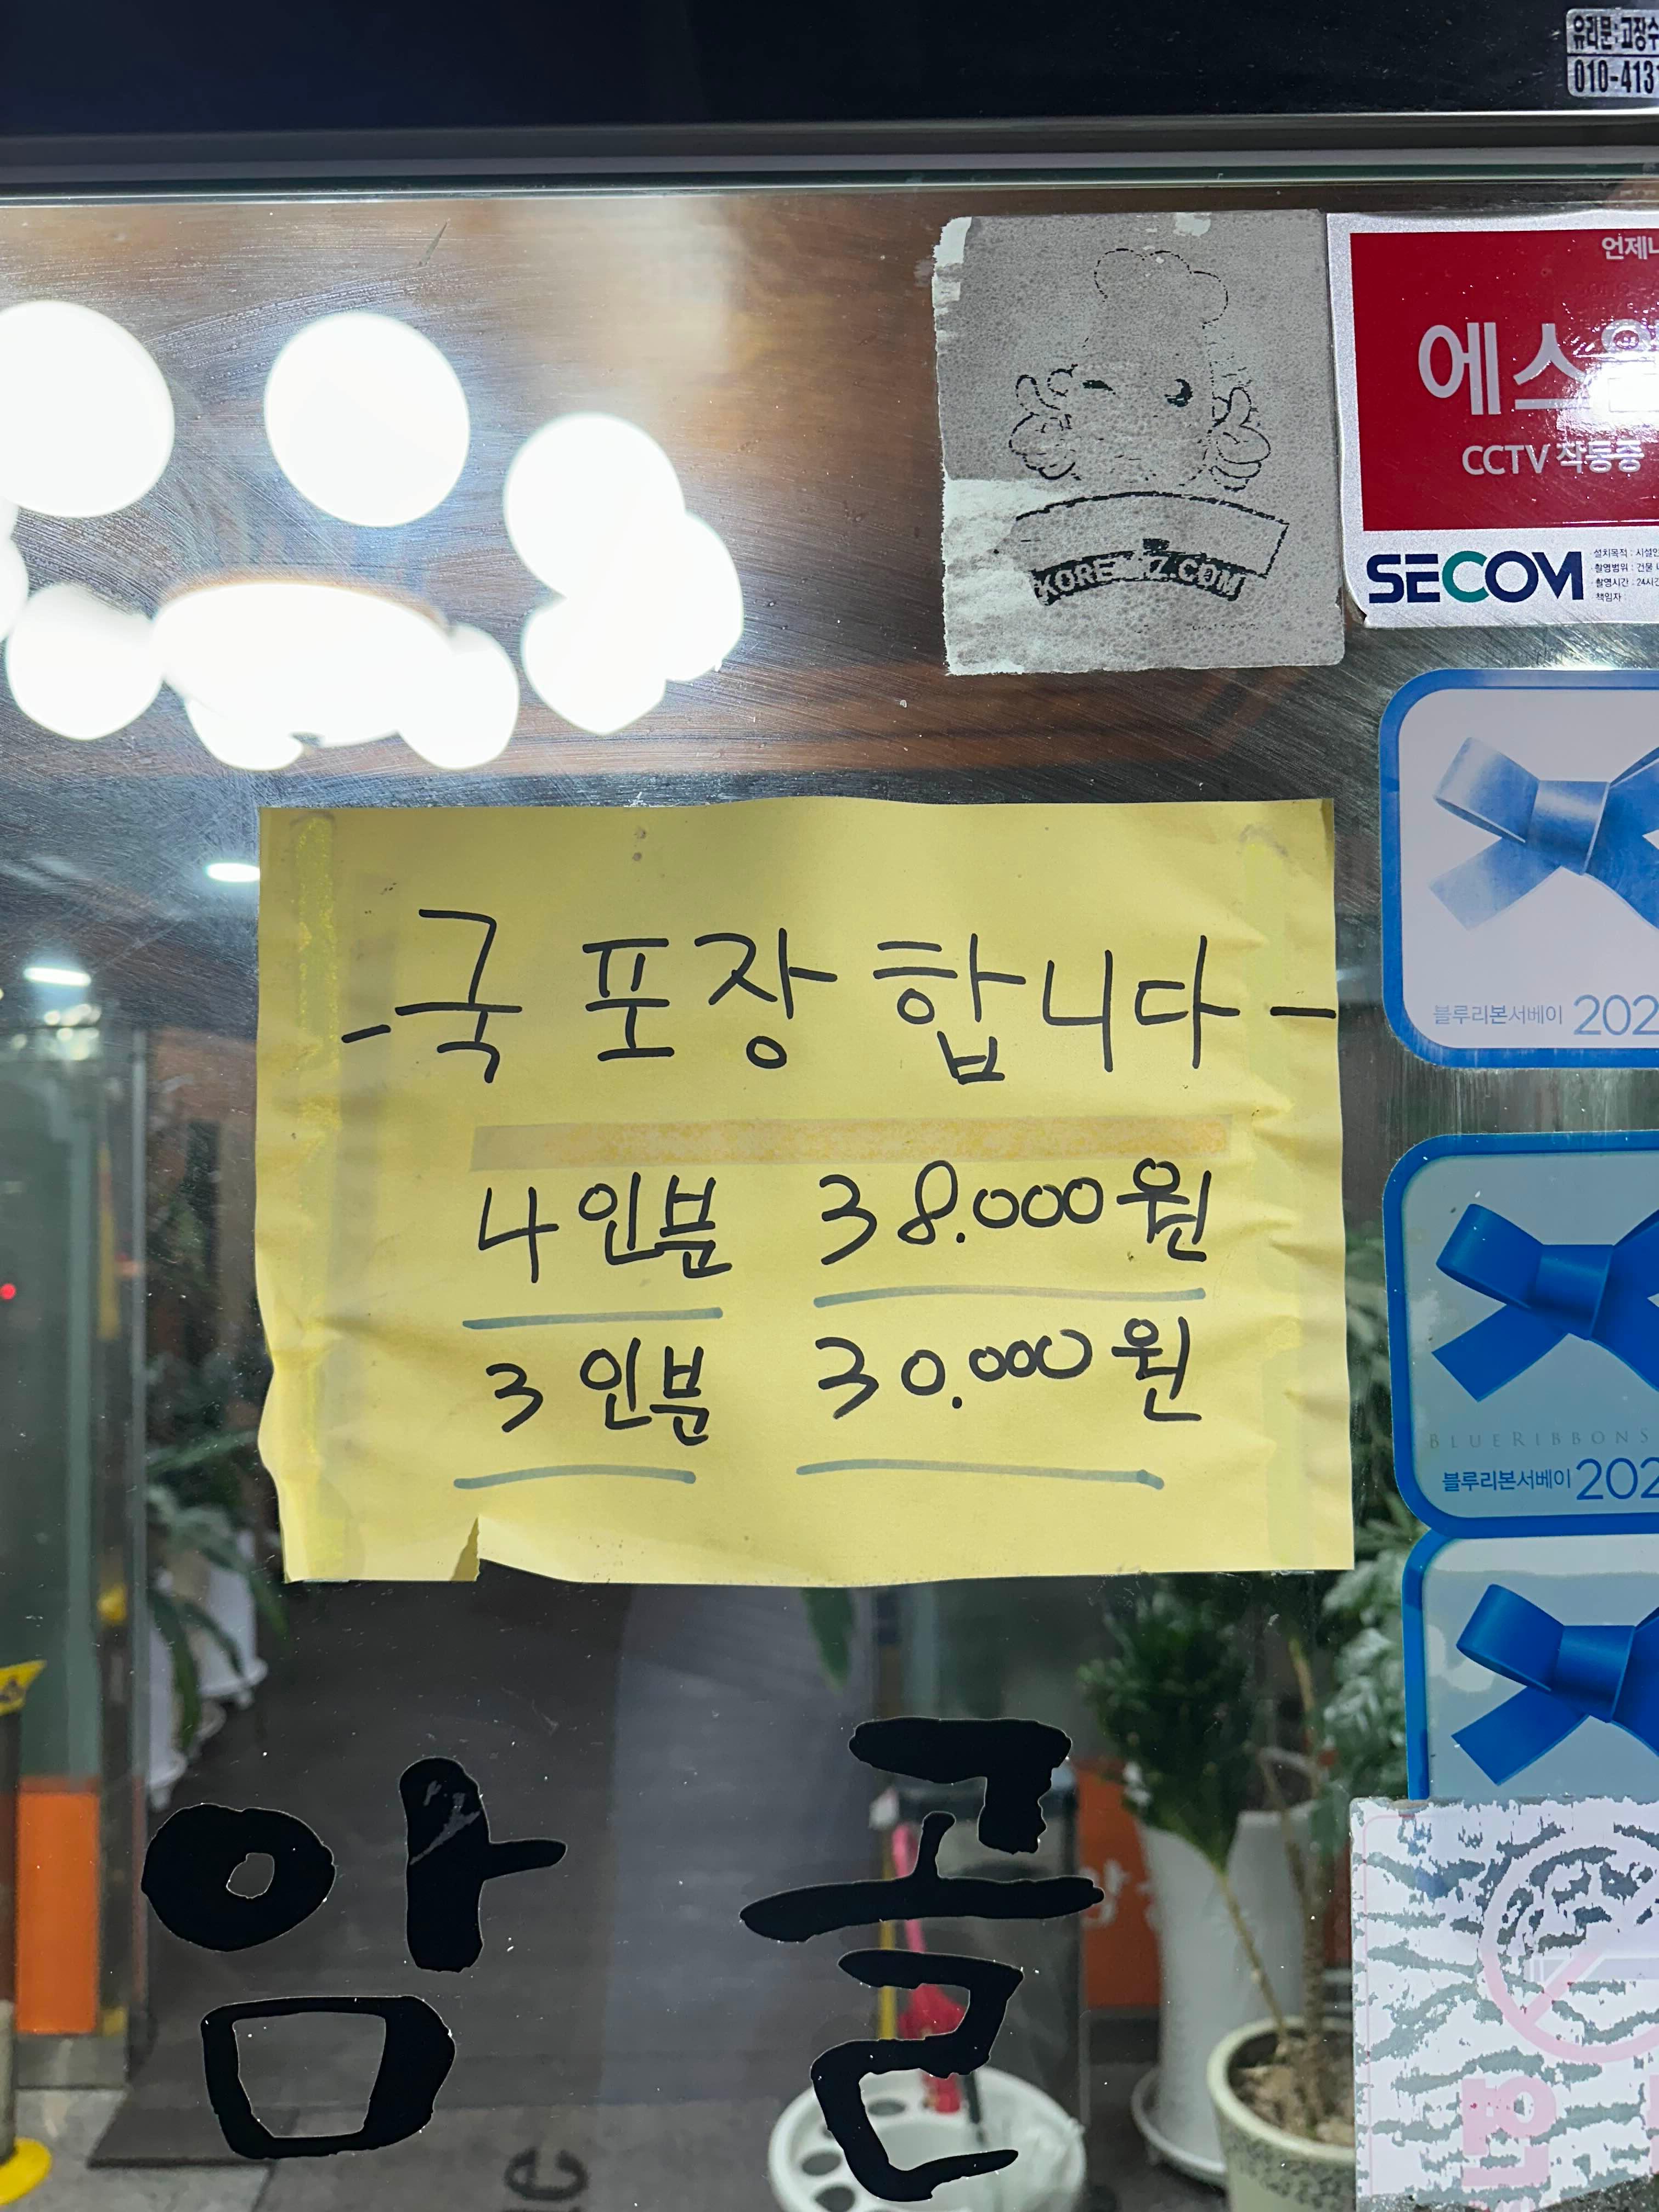 유리문:고장수
010-413
언제나
에스원
CCTV 작동중
SECOM
설치목적 : 시설안
촬영범위 : 건물 내
촬영시간 : 24시간
책임자 :
Z.COM
- 국 포장 합니다 -
4인분 38.000원
3인분 30.000원
블루리본서베이 202
BLUERIBBONS
블루리본서베이 202
암 골